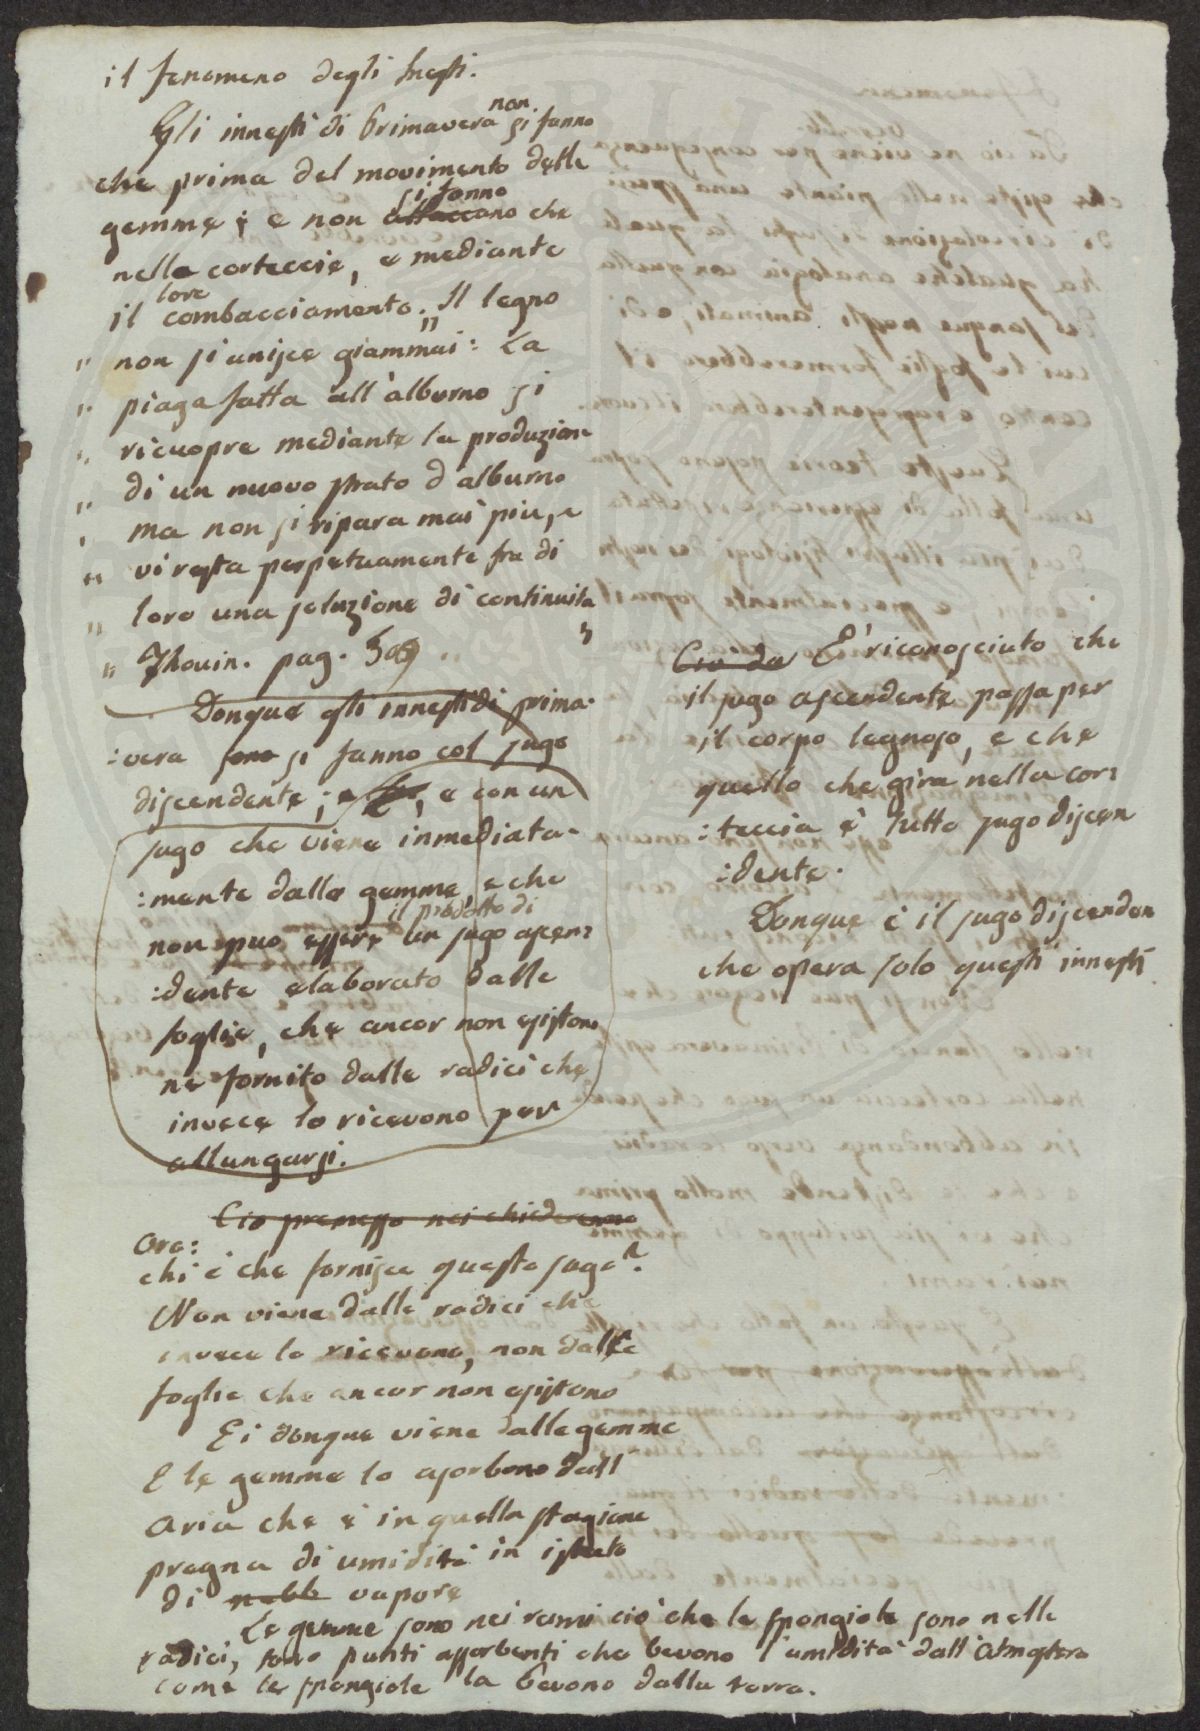 il fenomeno degli Inesti.
Gli innesti di Primavera non si fanno
che prima del movimento delle
gemme; e non attaccano si fanno che
nella corteccie, e mediante
il loro combacciamento. Il legno
" non si unisce giammai: La
" piaga fatta all'alburno si
" ricuopre mediante la produzione
" di un nuovo strato d'alburno
" ma non si ripara mai più, e
" vi resta perpetuamente fra di
" loro una soluzione di continuità "
" Thouin. pag. 
Donque gli innesti di prima:
:vera sono si fanno col sugo
discendente; e, e con un
sugo che viene inmediata:
:mente dalle gemme, e che
non puo essere il prodotto di un sugo ascen:
:dente elaborato dalle
foglie, che ancor non esistono
ne fornito dalle radici che
invece lo ricevono per
allungarsi.
Cio premesso noi chiederemo
Ora:
chi è che fornisce questo sugo?
Non viene dalle radici che
invece lo ricevono, non dalle
foglie che ancor non esistono
Ei donque viene dalle gemme
E le gemme lo asorbono dall
aria che è in quella stagione
pregna di umidità in istato
di nebb vapore
Le gemme sono nei rami ciò che le spongiole sono nelle
radici, sono punti assorbenti che bevono l'umidità dall'Atmosfera
come le spongiole la bevono dalla terra.
Ciò da E' riconosciuto che
il sugo ascendente passa per
il corpo legnoso, e che
quello che gira nella cor:
:teccia è tutto sugo discen
:dente.
Donque è il sugo discenden
che opera solo questi innesti